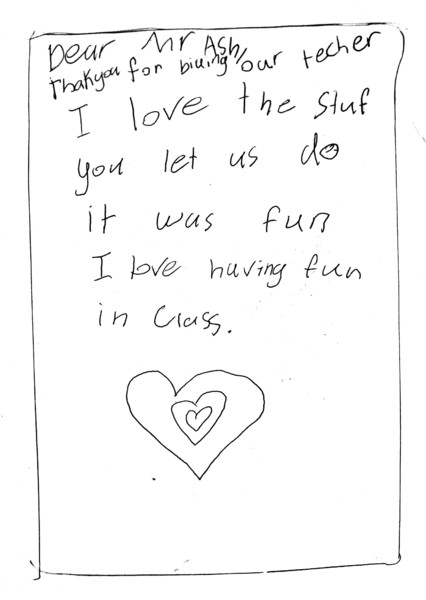 Dear Mr Ash,
Thakyou for biuing our techer
I love the stuf
you let us do
it was fun
I love having fun
in Class.